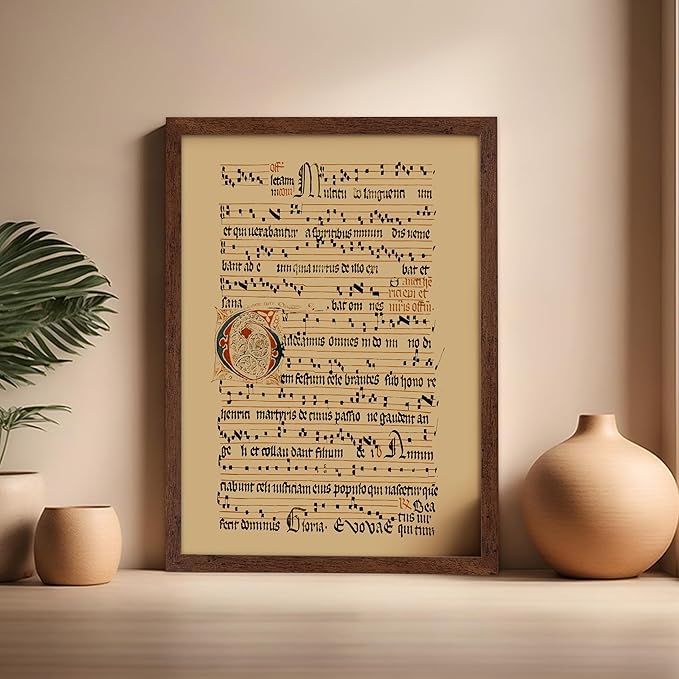 Off͞
letam Multitu do languenti um
et qui uexabantur a spiritibus inmun dis uenie
bant ad e um quia uirtus de illo exi bat et
S. anct he
rici epi et
sana bat om nes
G audeamus omnes in do mi no di
em festum cele brantes sub hono re
henrici martyris de cuius passio ne gaudent an
ge li et collau dant filium de i D Annun
ciabunt celi iusticiam eius populo qui nascetur que
fecit dominus Gloria. EVOVAE
Bea
tus uir
qui tim